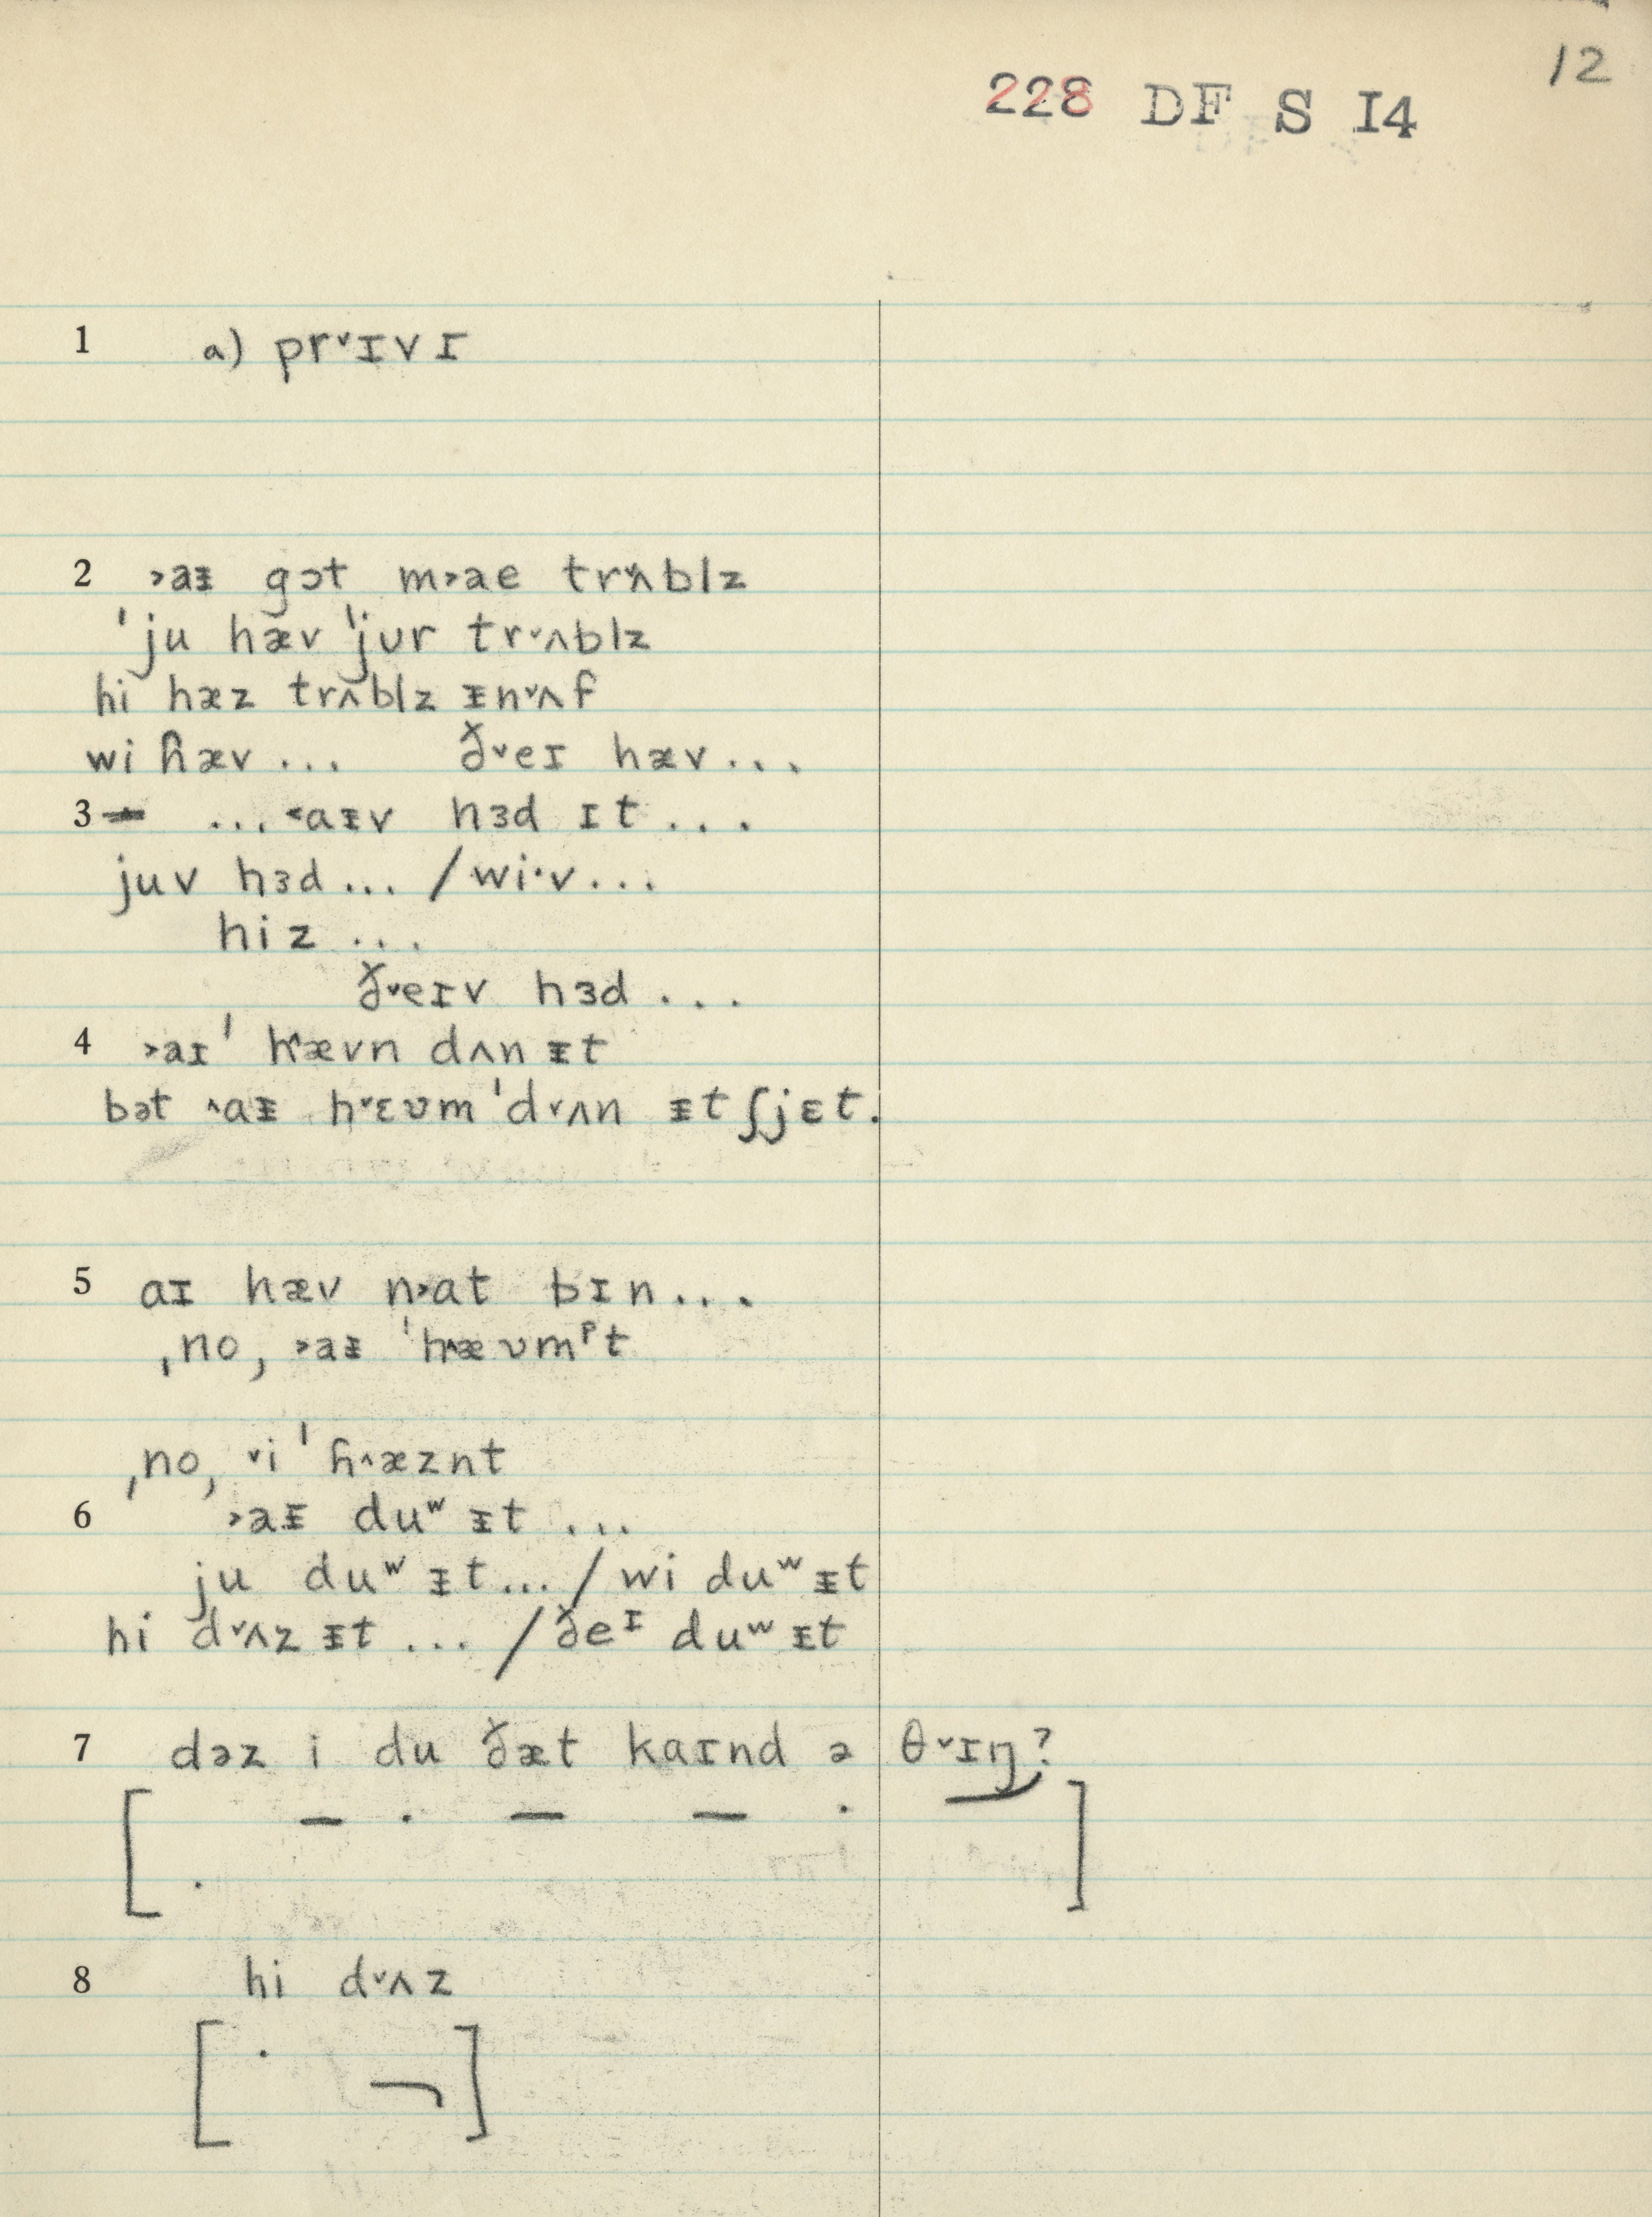 12
228 DF S I4
1 a) pr˅ɪv ɪ
2 ˃aᵻ gɔt m˃ae tr˄ʌblz
ˈju hæv ˈjʊr tr˅ʌblz
hi hæz trʌblz ᵻn˅ʌf
wi ɦæv ... ð˅eɪ hæv ...
3 ... ˂aᵻv hɜd ɪt ...
juv hɜd ... / wi·v ...
hiz ...
ð˅eɪv hɜd ...
4 ˃aɪ ˈh˄ævn dʌn ᵻt
bət ˄aᵻ h˅ɛʋm ˈd˅ʌn ᵻtʃjɛt.
5 aɪ hæv n˃at bɪn ...
ˌno, ˃aᵻ ˈh˄æʋmᵖt
ˌno, ˅i ˈɦ˄æznt
6 ˃aᵻ duʷ ᵻt ...
ju duʷ ᵻt ... / wi duʷ ᵻt
hi d˅ʌz ᵻt ... / ðeᶦ duʷ ᵻt
7 dəz i du ðæt kaɪnd ə θ˅ɪŋ?
8 hi d˅ʌz